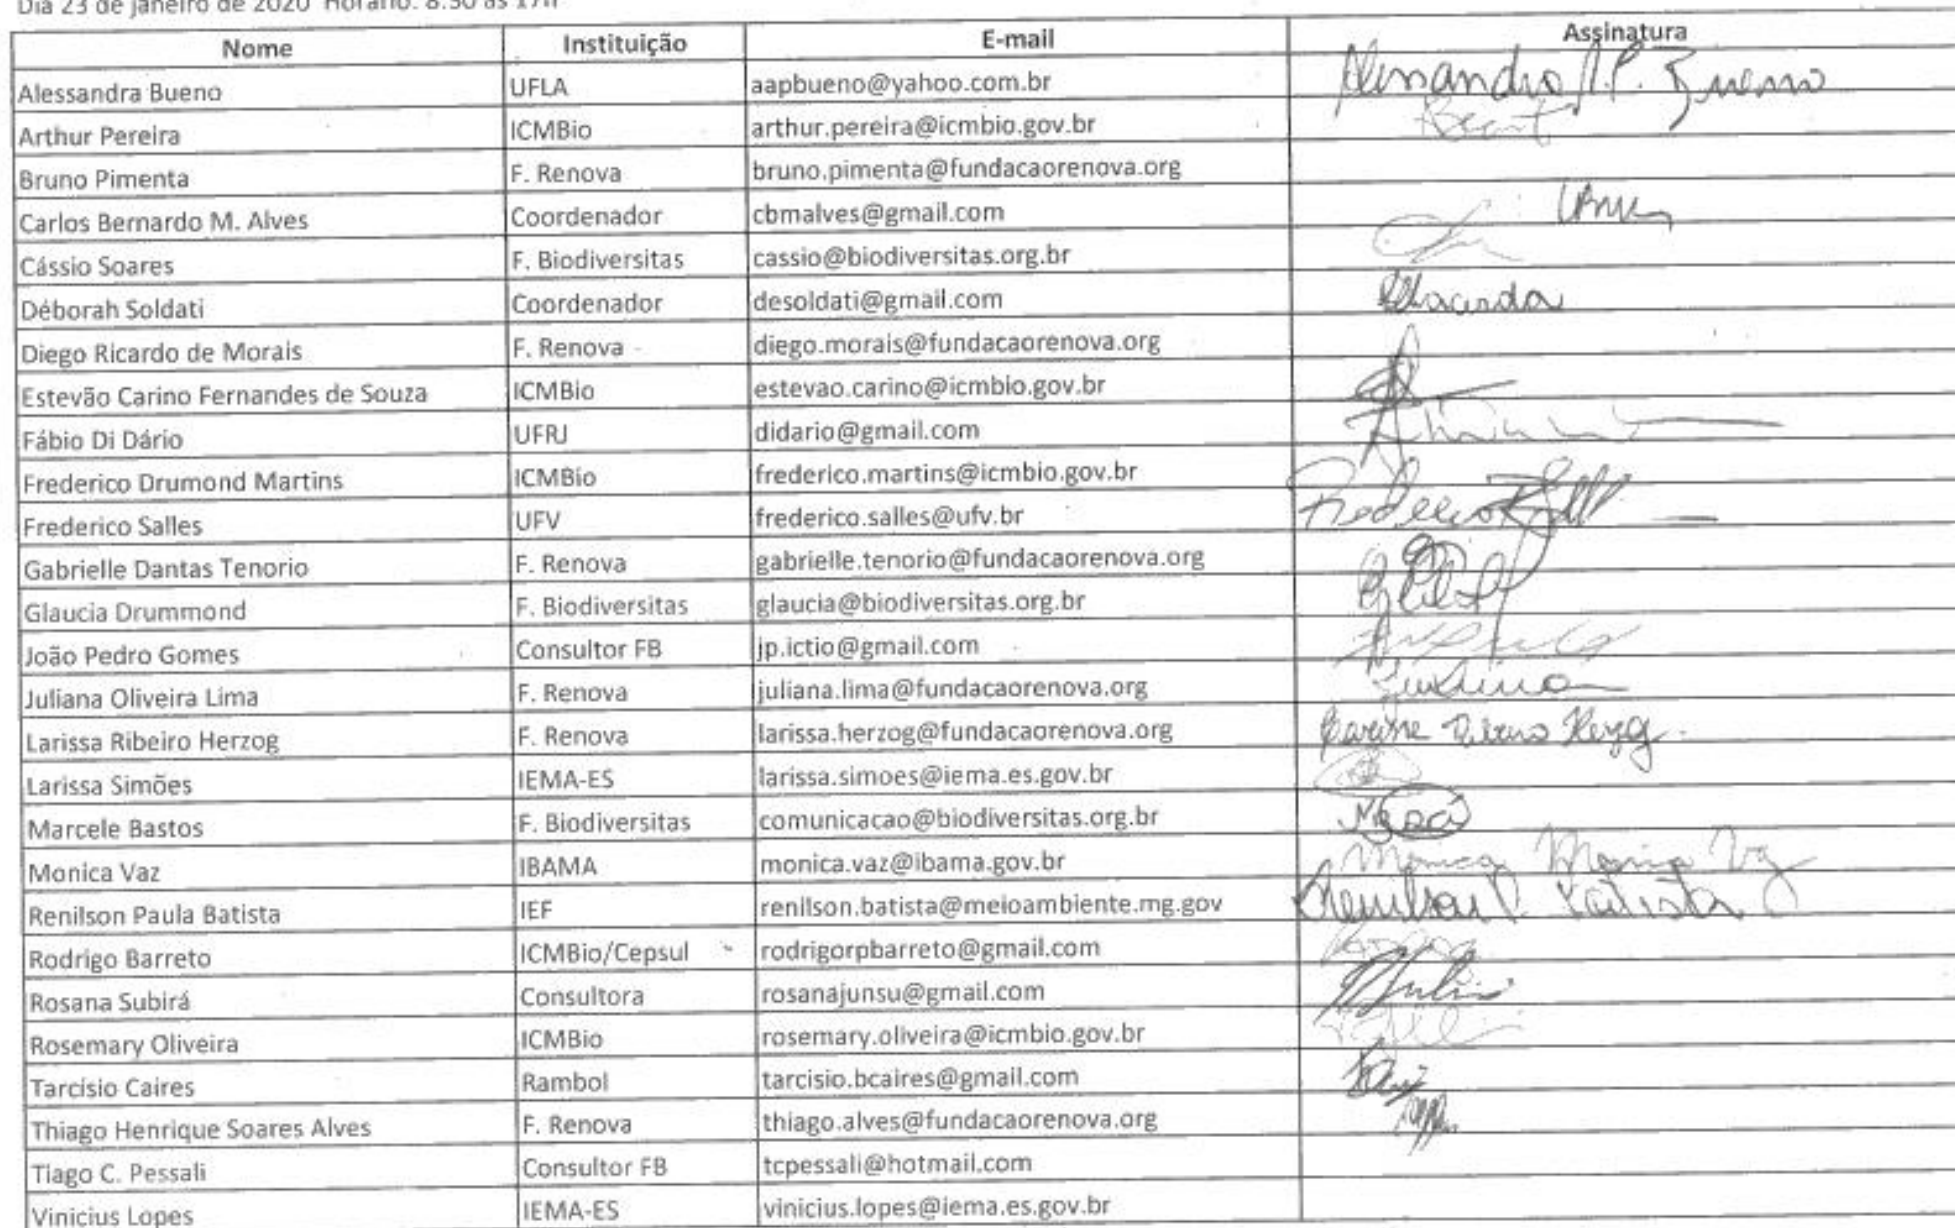 Dia 23 de janeiro de 2020 Horário: 8:30 às 17h
Nome Instituição E-mail Assinatura
Alessandra Bueno UFLA aapbueno@yahoo.com.br Alessandra A.P. Bueno
Arthur Pereira ICMBio arthur.pereira@icmbio.gov.br
Bruno Pimenta F. Renova bruno.pimenta@fundacaorenova.org
Carlos Bernardo M. Alves Coordenador cbmalves@gmail.com
Cássio Soares F. Biodiversitas cassio@biodiversitas.org.br
Déborah Soldati Coordenador desoldati@gmail.com
Diego Ricardo de Morais F. Renova diego.morais@fundacaorenova.org
Estevão Carino Fernandes de Souza ICMBio estevao.carino@icmbio.gov.br
Fábio Di Dário UFRJ didario@gmail.com
Frederico Drumond Martins ICMBio frederico.martins@icmbio.gov.br
Frederico Salles UFV frederico.salles@ufv.br
Gabrielle Dantas Tenorio F. Renova gabrielle.tenorio@fundacaorenova.org
Glaucia Drummond F. Biodiversitas glaucia@biodiversitas.org.br
João Pedro Gomes Consultor FB jp.ictio@gmail.com
Juliana Oliveira Lima F. Renova juliana.lima@fundacaorenova.org
Larissa Ribeiro Herzog F. Renova larissa.herzog@fundacaorenova.org
Larissa Simões IEMA-ES larissa.simoes@iema.es.gov.br
Marcele Bastos F. Biodiversitas comunicacao@biodiversitas.org.br
Monica Vaz IBAMA monica.vaz@ibama.gov.br Monica Maria Vaz
Renilson Paula Batista IEF renilson.batista@meioambiente.mg.gov Renilson P. Batista
Rodrigo Barreto ICMBio/Cepsul rodrigorpbarreto@gmail.com
Rosana Subirá Consultora rosanajunsu@gmail.com
Rosemary Oliveira ICMBio rosemary.oliveira@icmbio.gov.br
Tarcísio Caires Rambol tarcisio.bcaires@gmail.com
Thiago Henrique Soares Alves F. Renova thiago.alves@fundacaorenova.org
Tiago C. Pessali Consultor FB tcpessali@hotmail.com
Vinicius Lopes IEMA-ES vinicius.lopes@iema.es.gov.br